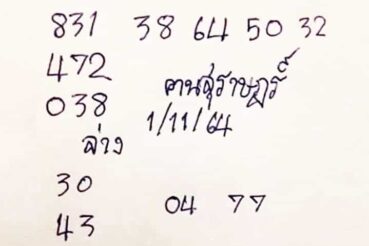 831 38 64 50 32
472
คนสุราษฎร์
038
1/11/64
ล่าง
30
04 77
43